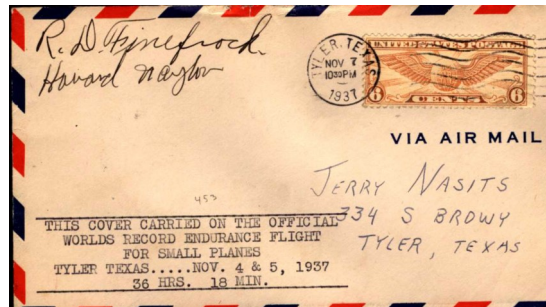 R. D. Finefrock
Howard Naylor
TYLER, TEXAS
NOV 7
10 30 PM
1937
UNITED STATES POSTAGE
6 CENTS 6
VIA AIR MAIL
JERRY NASITS
334 S BROWY
TYLER, TEXAS
453
THIS COVER CARRIED ON THE OFFICIAL
WORLDS RECORD ENDURANCE FLIGHT
FOR SMALL PLANES
TYLER TEXAS.....NOV. 4 & 5, 1937
36 HRS. 18 MIN.